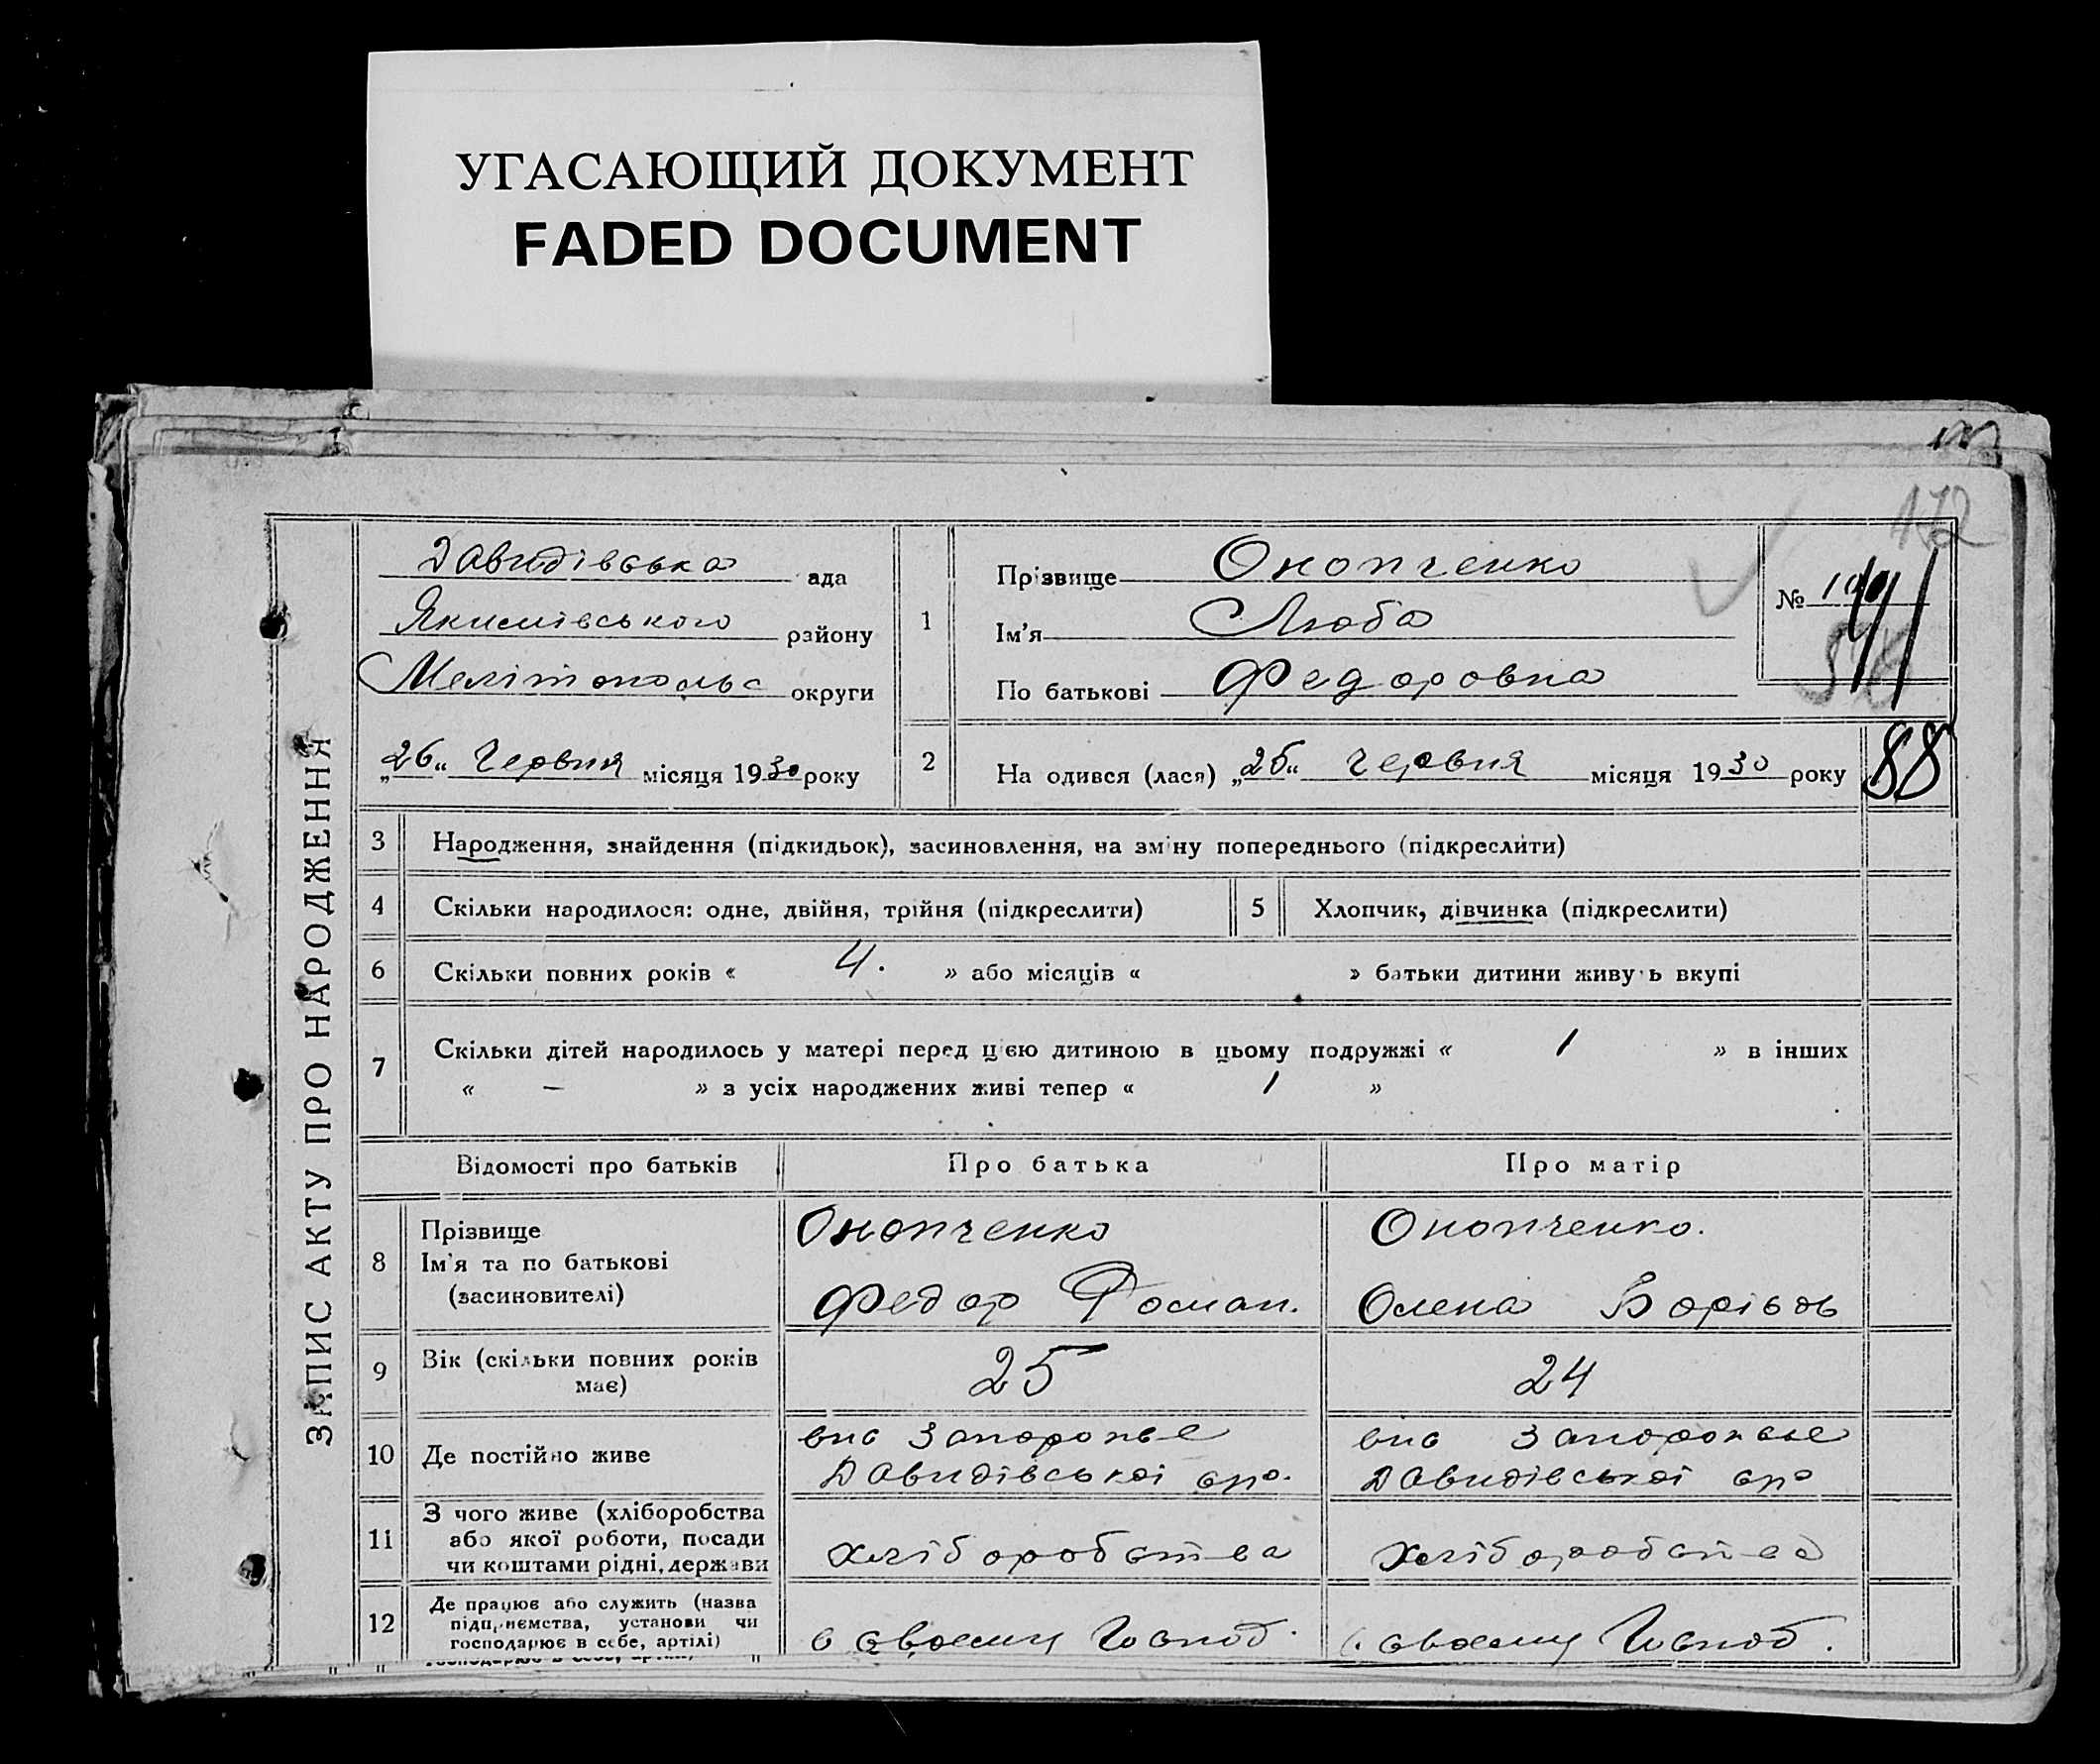 УГАСАЮЩИЙ ДОКУМЕНТ
FADED DOCUMENT
172
ЗАПИС АКТУ ПРО НАРОДЖЕННЯ
Давидівська ада
Якимівського району
Мелітопольс округи
„26“ Червня місяця 1930 року
1
Прізвище Онопченко
Ім'я Люба
По батькові Федоровна
№
2 На одився (лася) „25“ червня місяця 1930 року
88
3 Народження, знайдення (підкидьок), засиновлення, на зміну попереднього (підкреслити)
4 Скільки народилося: одне, двійня, трійня (підкреслити) 5 Хлопчик, дівчинка (підкреслити)
6 Скільки повних років « 4. » або місяців « » батьки дитини живуть вкупі
7 Скільки дітей народилось у матері перед цією дитиною в цьому подружжі « 1 » в інших
« — » з усіх народжених живі тепер « 1 »
Відомості про батьків Про батька Про матір
8 Прізвище
Ім'я та по батькові
(засиновителі)
Онопченко
Федор Роман.
Онопченко.
Олена Борісов
9 Вік (скільки повних років
має)
25 24
10 Де постійно живе
Запорожье
Давидівської с/р.
Запорожье
Давидівської с/р
11 З чого живе (хліборобства
або якої роботи, посади
чи коштами рідні, держави
хліборобства хліборобства
12 Де працює або служить (назва
підприємства, установи чи
господарює в себе, артілі)
в своєму Господ. в своєму Господ.